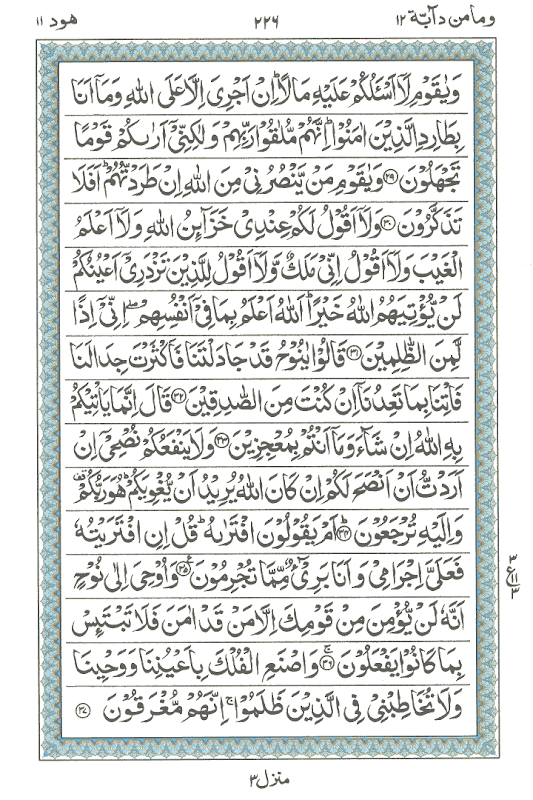 وما من دآبّة ١٢ ٢٢٦ هود ١١
وَيٰقَوْمِ لَاۤ اَسْـَٔلُكُمْ عَلَيْهِ مَالًا ؕ اِنْ اَجْرِىَ اِلَّا عَلَى اللّٰهِ وَمَاۤ اَنَا
بِطَارِدِ الَّذِيْنَ اٰمَنُوْا ؕ اِنَّهُمْ مُّلٰقُوْا رَبِّهِمْ وَلٰكِنِّىْۤ اَرٰىكُمْ قَوْمًا
تَجْهَلُوْنَ ﴿۲۹﴾ وَيٰقَوْمِ مَنْ يَّنْصُرُنِىْ مِنَ اللّٰهِ اِنْ طَرَدْتُّهُمْ ؕ اَفَلَا
تَذَكَّرُوْنَ ﴿۳۰﴾ وَلَاۤ اَقُوْلُ لَكُمْ عِنْدِىْ خَزَآئِنُ اللّٰهِ وَلَاۤ اَعْلَمُ
الْغَيْبَ وَلَاۤ اَقُوْلُ اِنِّىْ مَلَكٌ وَّلَاۤ اَقُوْلُ لِلَّذِيْنَ تَزْدَرِىْۤ اَعْيُنُكُمْ
لَنْ يُّؤْتِيَهُمُ اللّٰهُ خَيْرًا ؕ اَللّٰهُ اَعْلَمُ بِمَا فِىْۤ اَنْفُسِهِمْ ۖ اِنِّىْۤ اِذًا
لَّمِنَ الظّٰلِمِيْنَ ﴿۳۱﴾ قَالُوْا يٰنُوْحُ قَدْ جَادَلْتَنَا فَاَكْثَرْتَ جِدَالَنَا
فَاْتِنَا بِمَا تَعِدُنَاۤ اِنْ كُنْتَ مِنَ الصّٰدِقِيْنَ ﴿۳۲﴾ قَالَ اِنَّمَا يَاْتِيْكُمْ
بِهِ اللّٰهُ اِنْ شَآءَ وَمَاۤ اَنْتُمْ بِمُعْجِزِيْنَ ﴿۳۳﴾ وَلَا يَنْفَعُكُمْ نُصْحِىْۤ اِنْ
اَرَدْتُّ اَنْ اَنْصَحَ لَكُمْ اِنْ كَانَ اللّٰهُ يُرِيْدُ اَنْ يُّغْوِيَكُمْ ؕ هُوَ رَبُّكُمْ
وَاِلَيْهِ تُرْجَعُوْنَ ﴿۳۴﴾ اَمْ يَقُوْلُوْنَ افْتَرٰىهُ ؕ قُلْ اِنِ افْتَرَيْتُهٗ
فَعَلَىَّ اِجْرَامِىْ وَاَنَا بَرِىْٓءٌ مِّمَّا تُجْرِمُوْنَ ﴿۳۵﴾ وَاُوْحِىَ اِلٰى نُوْحٍ
اَنَّهٗ لَنْ يُّؤْمِنَ مِنْ قَوْمِكَ اِلَّا مَنْ قَدْ اٰمَنَ فَلَا تَبْتَئِسْ
بِمَا كَانُوْا يَفْعَلُوْنَ ﴿۳۶﴾ وَاصْنَعِ الْفُلْكَ بِاَعْيُنِنَا وَوَحْيِنَا
وَلَا تُخَاطِبْنِىْ فِى الَّذِيْنَ ظَلَمُوْا ۚ اِنَّهُمْ مُّغْرَقُوْنَ ﴿۳۷﴾
٣
ع ١١
٣
منزل ٣